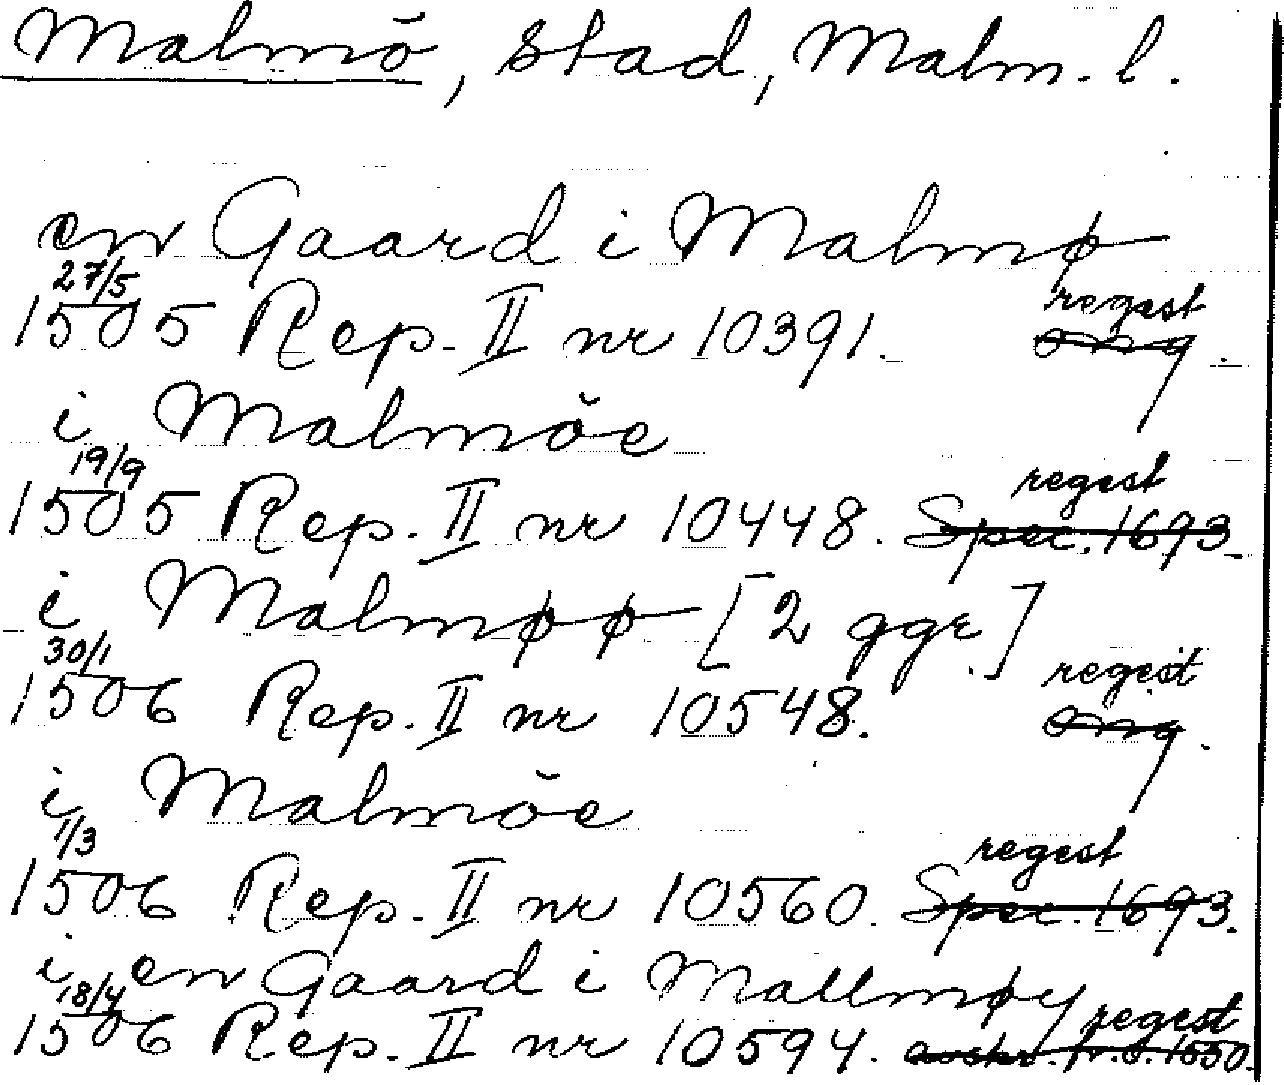 Malmö, stad, Malm. l.
en Gaard i Malmø
27/5 regest
1505 Rep. II nr 10391. omg.
i Malmöe
19/9 regest
1505 Rep. II nr 10448. Spec. 1693.
i Malmøø [2 ggr.]
30/1 regest
1506 Rep. II nr 10548. omg.
i Malmöe
1/3 regest
1506 Rep. II nr 10560. Spec. 1693.
i en Gaard i Mallmøy
18/4 regest
1506 Rep. II nr 10594. avskr. fr. o. 1550.